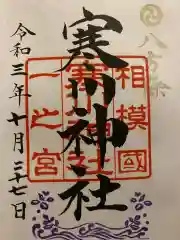 八方除
相模國
寒川神社
一之宮
令和三年十月二十七日